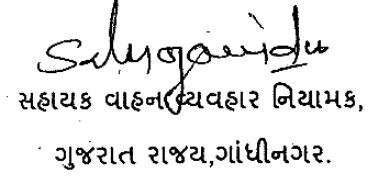 સહાયક વાહન વ્યવહાર નિયામક,
ગુજરાત રાજય,ગાંધીનગર.